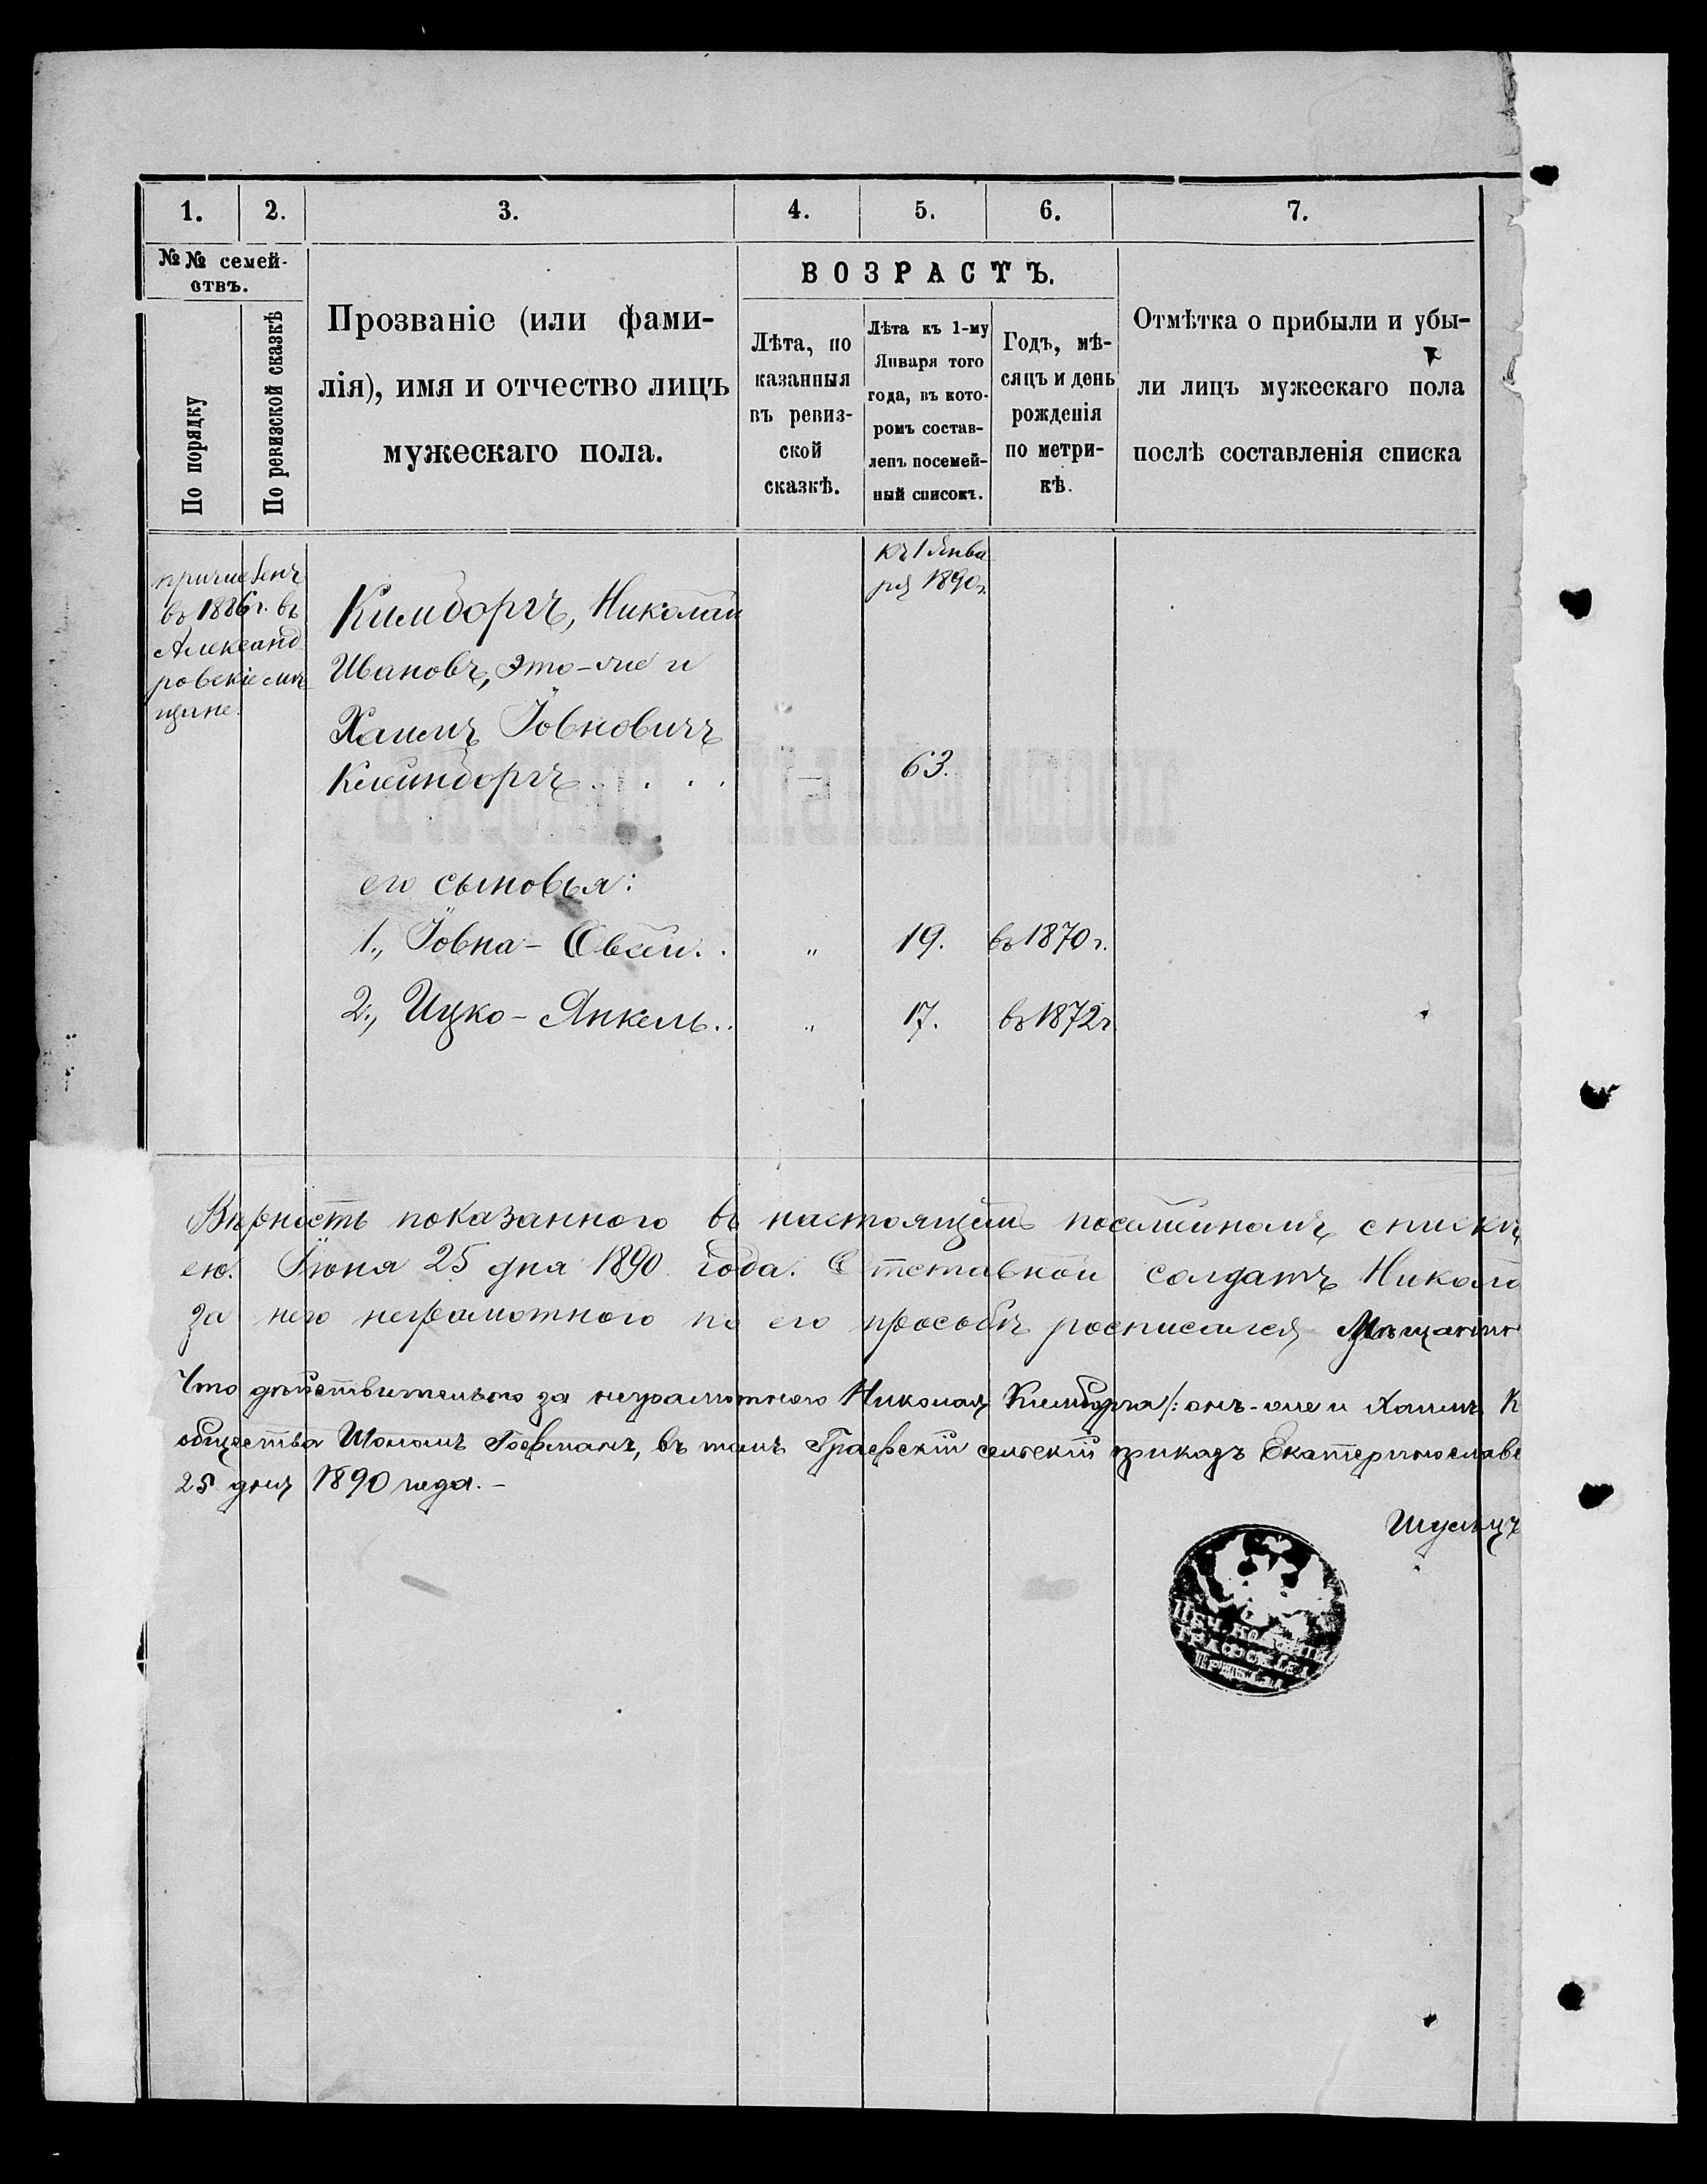 1. 2. 3. 4. 5. 6. 7.
№№ семей-
ствъ.
По порядку
По ревизской сказкѣ
Прозваніе (или фами-
лія), имя и отчество лицъ
мужескаго пола.
ВОЗРАСТЪ.
Лѣта, по
казанныя
въ ревиз-
ской
сказкѣ.
Лѣта къ 1-му
Января того
года, въ кото-
ромъ состав-
ленъ посемей-
ный списокъ.
Годъ, мѣ-
сяцъ и день
рожденія
по метри-
кѣ.
Отмѣтка о прибыли и убы-
ли лицъ мужескаго пола
послѣ составленія списка
причисленъ
въ 1886 г. въ
Александ
ровскіе мѣ
щане.
къ 1 Янва
ря 1890 г.
Кимборгъ, Николай
Ивановъ, это-же и
Хаимъ Іовновичъ
Клейнборгъ . . . . — 63.
его сыновья:
1., Іовна- Овсей. . „ 19. въ 1870 г.
2., Ицко- Янкель. . „ 17. въ 1872 г.
Вѣрность показаннаго въ настоящемъ посемейномъ спискѣ
ею. Іюня 25 дня 1890 года. Отставной солдатъ Никола
За него неграмотнаго по его просьбѣ росписался Мѣщанинъ
Что дѣйствительно за неграмотнаго Николая Кимборга /: онъ-же и Хаимъ К
общества Шоломъ Гофманъ, въ томъ Графскій сельскій приказъ Екатеринослав
25 дня 1890 года. –
Шульцъ
ПЕЧ. КОЛОНІИ
ГРАФСКАЯ